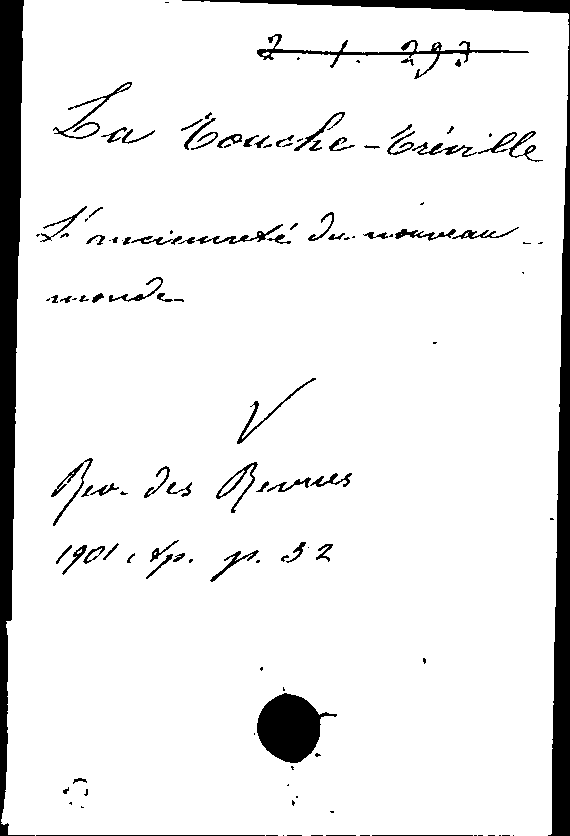 2. 1. 293
La Touche-Tréville
L'ancienneté du nouveau-
monde
V
Rev. des Revues
1901 Ap. p. 32